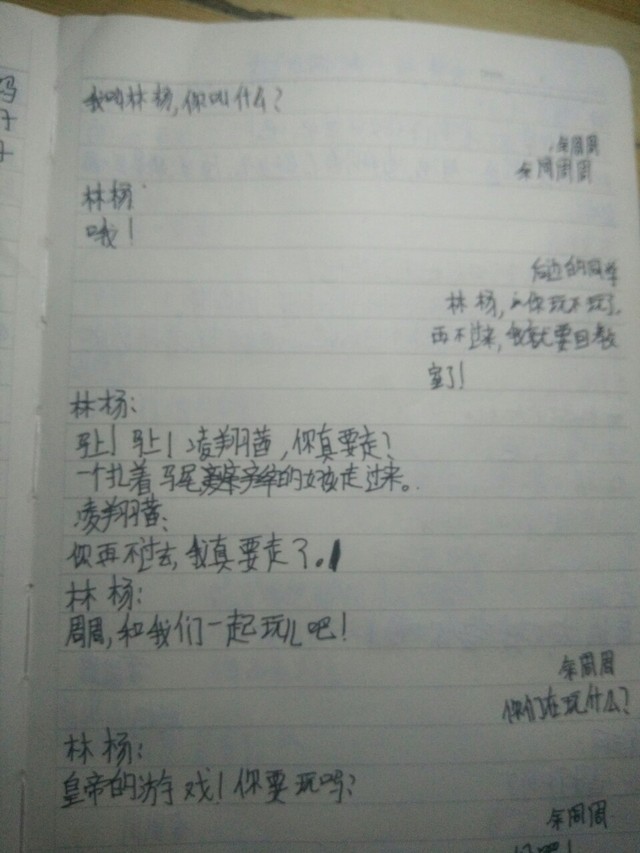 我叫林杨,你叫什么?
余周周
余周周
林杨:
哦!
后边的同学
林杨,你玩不玩了,
再不过来,我就要回教
室了!
林杨:
马上!马上!凌翔茜,你真要走?
一个扎着马尾的女孩走过来。
凌翔茜:
你再不过去,我真要走了。
林杨:
周周,和我们一起玩儿吧!
余周周
你们在玩什么?
林杨:
皇帝的游戏!你要玩吗?
余周周
好吧!